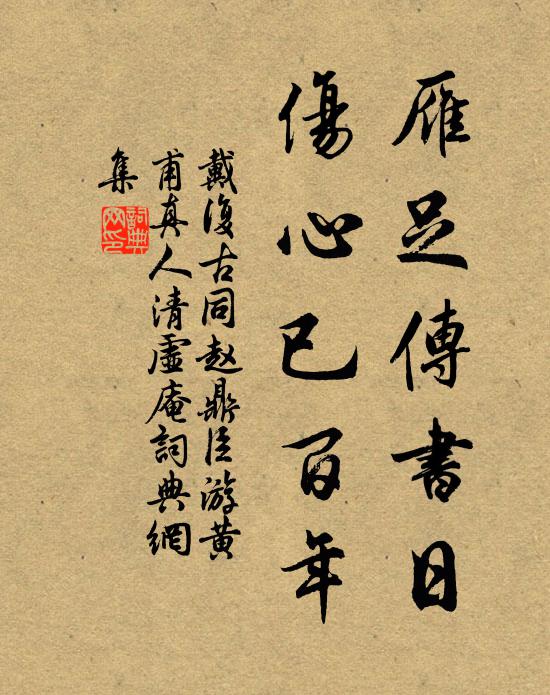 雁足傳書日
傷心已百年
戴復古同赵鼎臣游黄
甫真人清虛庵詞典網
集
詞典网印